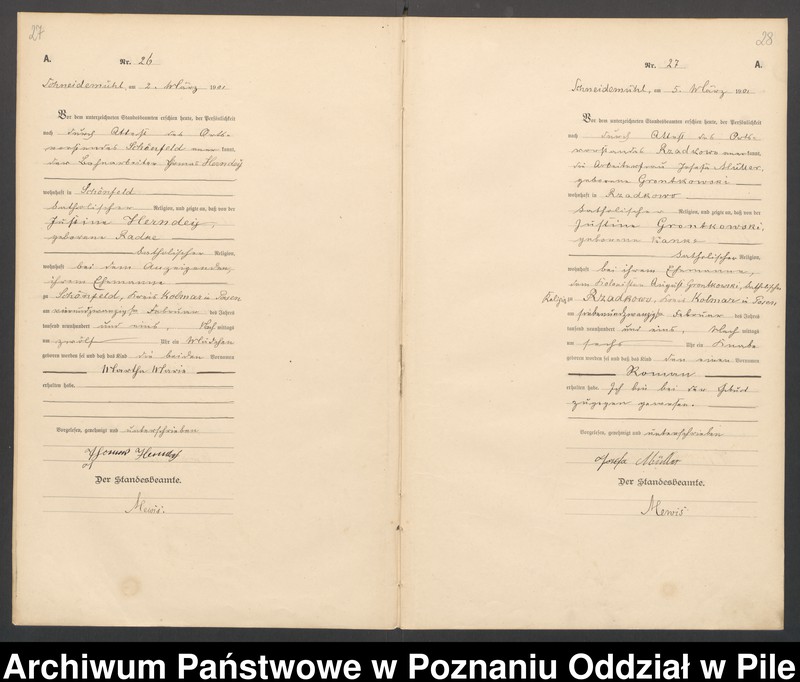 27
A.
Nr. 26
Schneidemühl, am 2. März 1901
Vor dem unterzeichneten Standesbeamten erschien heute, der Persönlichkeit
nach durch Attest des Orts-
vorstandes Schönfeld anerkannt,
der Bahnarbeiter Thomas Herndey
wohnhaft in Schönfeld
katholischer Religion, und zeigte an, daß von der
Justine Herndey,
geborene Radke
katholischer Religion,
wohnhaft bei dem Anzeigenden,
ihrem Ehemanne
zu Schönfeld, Kreis Kolmar i. Posen
am vierundzwanzigsten Februar des Jahres
tausend neunhundert und eins, Nachmittags
um zwölf Uhr ein Mädchen
geboren worden sei und daß das Kind die beiden Vornamen
Martha Marie
erhalten habe.
Vorgelesen, genehmigt und unterschrieben
Thomas Herndey
Der Standesbeamte.
Mewis.
28
Nr. 27 A.
Schneidemühl, am 5. März 1901
Vor dem unterzeichneten Standesbeamten erschien heute, der Persönlichkeit
nach durch Attest des Orts-
vorstandes Rzadkowo anerkannt,
die Arbeiterfrau Josefa Müller,
geborene Grontkowski
wohnhaft in Rzadkowo
katholischer Religion, und zeigte an, daß von der
Justine Grontkowski,
geborene
katholischer Religion,
wohnhaft bei ihrem Ehemanne,
dem August Grontkowski, katholischer
Religion zu Rzadkowo, Kreis Kolmar i. Posen,
am siebenundzwanzigsten Februar des Jahres
tausend neunhundert und eins, Nachmittags
um sechs Uhr ein Knabe
geboren worden sei und daß das Kind den einen Vornamen
Roman
erhalten habe. Ich bin bei der Geburt
zugegen gewesen.
Vorgelesen, genehmigt und unterschrieben
Josefa Müller
Der Standesbeamte.
Mewis
Archiwum Państwowe w Poznaniu Oddział w Pile